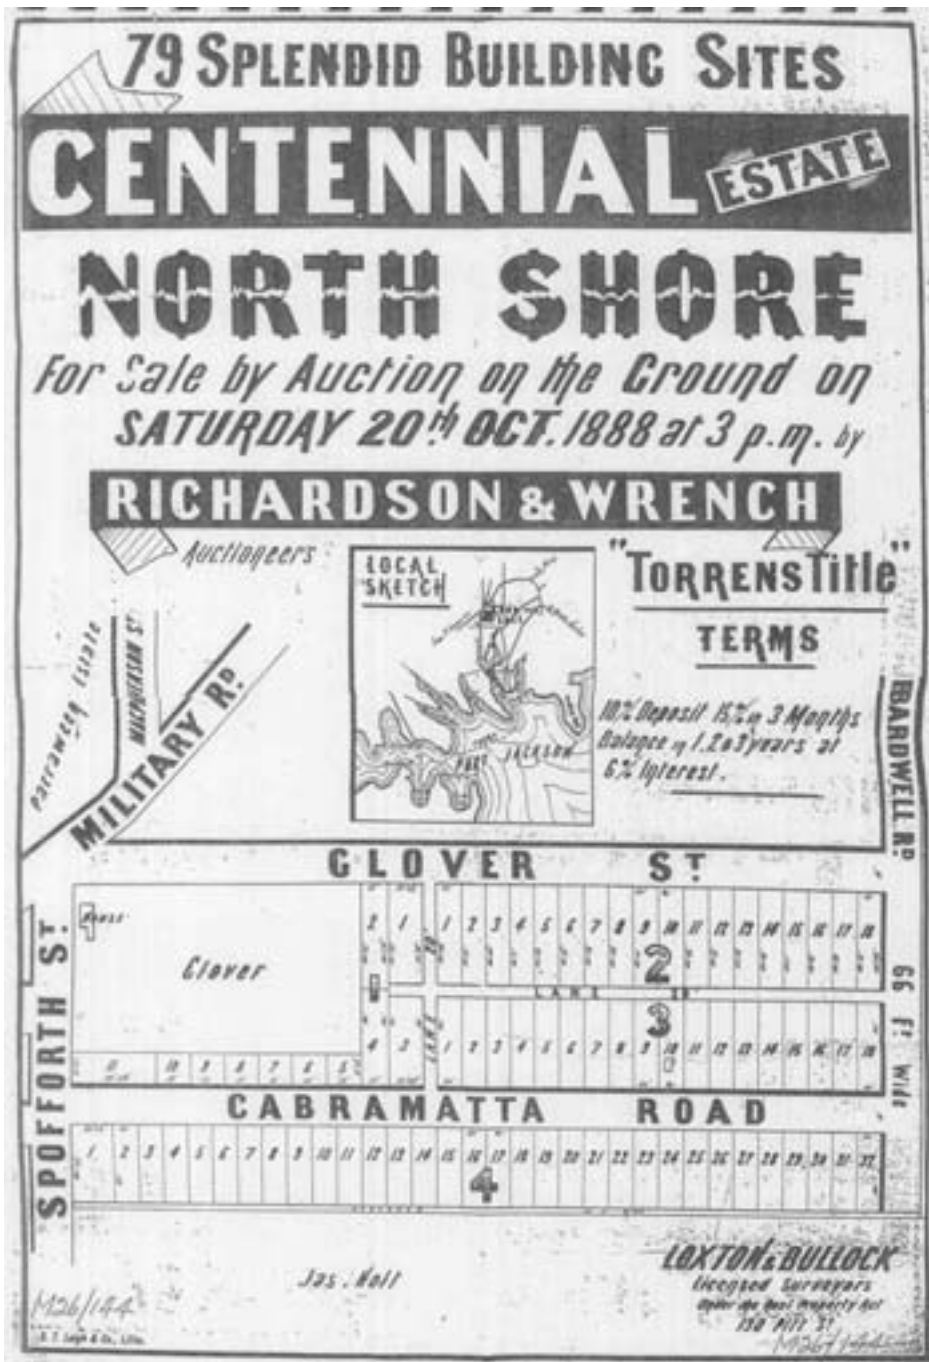 79 SPLENDID BUILDING SITES
CENTENNIAL ESTATE
NORTH SHORE
For Sale by Auction on the Ground on
SATURDAY 20th OCT. 1888 at 3 p.m. by
RICHARDSON & WRENCH
Auctioneers
LOCAL
SKETCH
PORT JACKSON
"TORRENS Title"
TERMS
10% Deposit 15% in 3 Months
Balance in 1.2 & 3 years at
6% Interest.
Parraween Estate
MACPHERSON ST
MILITARY RD
BARDWELL RD
66 Ft Wide
GLOVER ST
SPOFFORTH ST.
HOUSE
Glover
2 1
1 2 3 4 5 6 7 8 9 10 11 12 13 14 15 16 17 18
2
LANE
3
4 3
LANE
1 2 3 4 5 6 7 8 9 10 11 12 13 14 15 16 17 18
11 10 9 8 7 6 5
CABRAMATTA ROAD
1 2 3 4 5 6 7 8 9 10 11 12 13 14 15 16 17 18 19 20 21 22 23 24 25 26 27 28 29 30 31 32
4
Jas. Holt
LOXTON & BULLOCK
Licensed Surveyors
Under the Real Property Act
130 Pitt St
M26/144
S. T. Leigh & Co., Litho.
M26/144